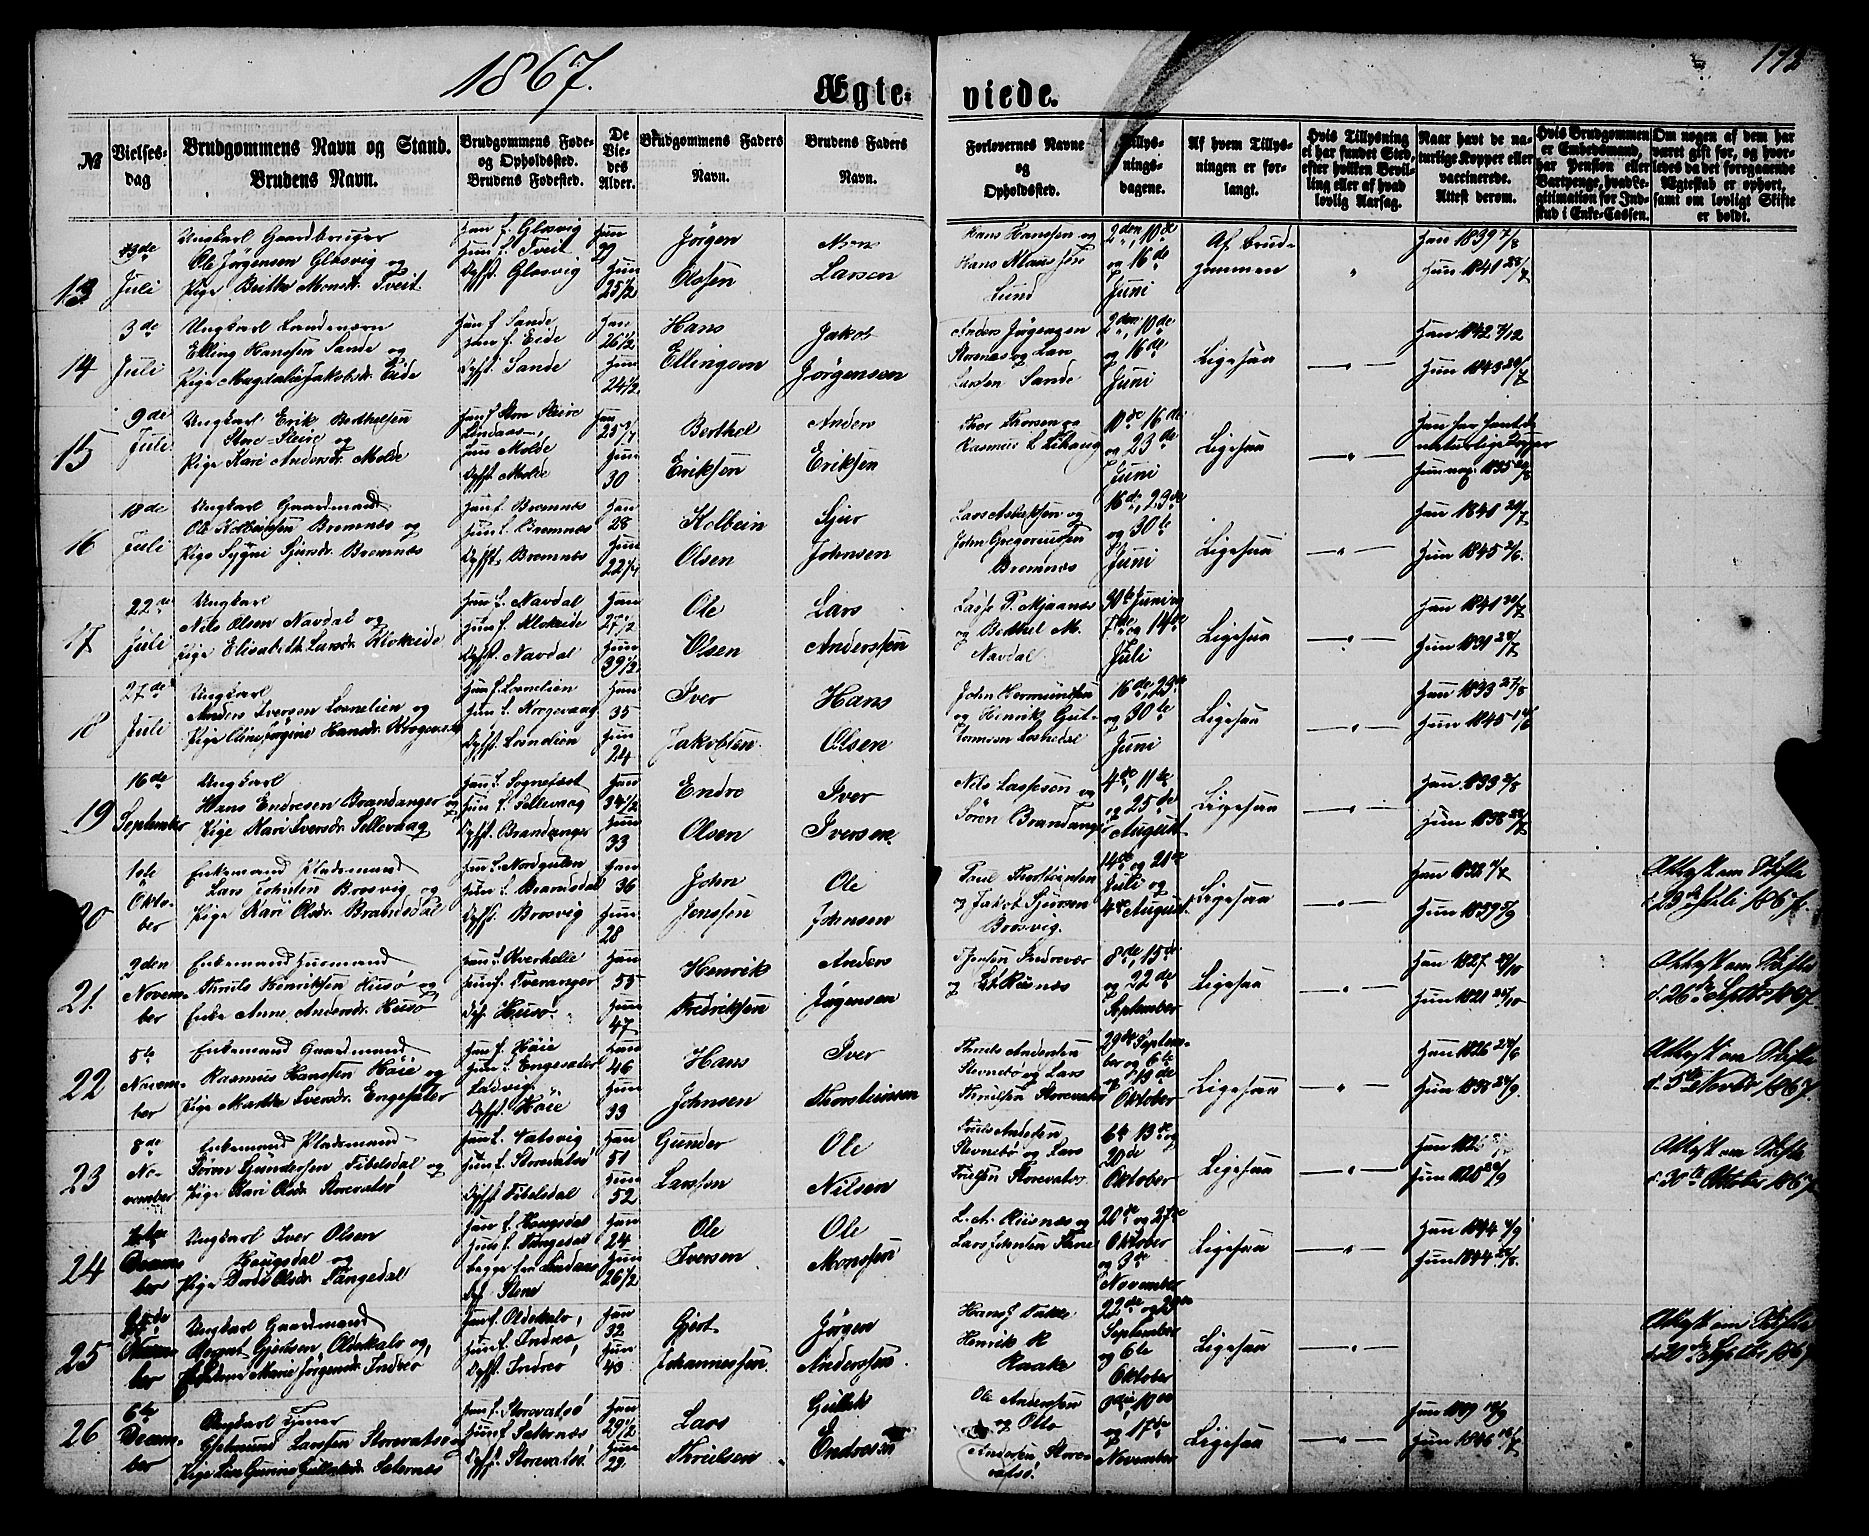 1867.
Ægte-
viede.
172
№
Vielses-
dag
Brudgommens Navn og Stand.
Brudens Navn.
Brudgommens Føde-
og Opholdssted.
Brudens Fødested.
De
Vie-
des
Alder.
Brudgommens Faders
Navn.
Brudens Faders
Navn.
Forlovernes Navne
og
Opholdssted.
Tillys-
nings-
dagene.
Af hvem Tillys-
ningen er for-
langt.
Hvis Tillysning
ei har fundet Sted,
efter hvilken Bevil-
ling eller af hvad
lovlig Aarsag.
Naar havt de na-
turlige Kopper eller
vaccinerede.
Attest derom.
Hvis Brudgommen
er Embedsmand,
har Pension eller
Vartpenge, hvad Le-
gitimation for Ind-
skud i Enke-Cassen.
Om nogen af dem har
været gift før, og hvor-
ledes da det foregaaende
Ægteskab er ophørt,
samt om lovligt Skifte
er holdt.
13
3de
Juli
Ungkarl Gaardbruger
Ole Jørgensen Glosvig og
Pige Brithe Monsdr. Tveit
Han f. Glosvig
Hun f. Tveit
Ophst. Glosvig
Han
og
Hun
25 1/2
Jørgen
Olssen
Mons
Larsen
Hans Hanssen og
Hans
Lund
2den, 10de
og 16de
Juni
Af Brud-
gommen
"
Han 1839 7/8
Hun 1841 28/7
14
3de
Juli
Ungkarl Landeværn
Elling Hanssen Sande og
Pige Jakobsdr. Eide
Han f. Sande
Hun f. Eide
Ophst. Sande
Han
26 1/2
Hun
24 1/2
Hans
Ellingsen
Jakob
Jørgensen
Anders Jørgensen
og Lars
Larsen Sande
2den, 10de
og 16de
Juni
Ligesaa
— " —
Han 1842 7/12
Hun 1843 20/7
15
9de
Juli
Ungkarl Erik Berthelsen
Store-Steire og
Pige Kari Andersdr. Molde
Han f. Store Steire
Lindaas,
Hun Molde
Ophst. Molde
Han
25 3/4
Hun
30
Berthel
Eriksen
Anders
Eriksen
Thor Thorsen og
Rasmus L
10de 16de
og 23de
Juni
Ligesaa
— " —
Han har havt de
naturlige Kopper
Hun vac. 1835
16
18de
Juli
Ungkarl Gaardmand
Ole Kolbeinsen Bremnæs og
Pige Sygni Sjursdr. Bremnæs
Han f. Bremnæs
Hun f. Bremnæs
Ophst. Bremnæs
Han
28
Hun
22
Kolbein
Olsen
Sjur
Johnsen
Lars og
John Gregoriussen
Bremnæs
16de, 23de
og 30te
Juni
Ligesaa
— " —
Han 1841 20/7
Hun 1845 2/6.
17
22de
Juli
Ungkarl
Nils Olsen Navdal og
Pige Elisabeth Larsdr. Klokeide
Han f. Navdal
Hun f. Klokeide
Ophst. Navdal
Han
27 1/2
Hun
39 1/2
Ole
Olsen
Lars
Anderssen
Lasse P. Mjaanes
og Berthel M.
Navdal
30te Juni og
7de og 14de
Juli
Ligesaa
— " —
Han 1841 20/7
Hun 1831 28/7
18
27de
Juli
Ungkarl
Anders Iversen og
Pige Oline Jørgine Hansdr.
Han
35
Hun
24
Iver
Jakobsen
Hans
Olsen
John Hermundsen
og Henrik Gut-
16de, 23de
og 30te
Juni
Ligesaa
— " —
Han 1833 27/8
Hun 1845 14/6
19
16de
September
Ungkarl
Hans Endresen Brandanger og
Pige Kari Iversdr. Sellevaag
Han f. Sognefæst
Hun f. Sellevaag
Ophst. Brandanger
Han
34 1/2
Hun
33
Endre
Olsen
Iver
Iversen
Nils Lassesen og
Søren Brandanger
4de, 11te
og 25de
August
Ligesaa
— " —
Han 1833 2/8
Hun 1838 28/7
20
1ste
Okto-
ber
Enkemand Pladsmand
Lars Johnsen Brosvig og
Pige Kari Olsdr. Brandsdal
Han f. Nordgulen
Hun f. Brandsdal
Ophst. Brosvig
Han
36
Hun
28
John
Jenssen
Ole
Johnsen
Poul Thorsteinsen
og Jakob Sjursen
Brosvig.
14de og 21de
Juli og
4de August
Ligesaa
— " —
Han 1832 1/7
Hun 1839 5/9
Attest om Skifte
d. 23de Juli 1867.
21.
2den
Novem-
ber
Enkemand Huusmand
Thruls Henriksen Husø og
Enke Anne Andersdr. Husø
Han f. Kverhelle
Hun f. Tveranger
Oph. Husø.
Han
55
Hun
47
Henrik
Fredriksen
Anders
Jørgensen
og Riisnæs
8de, 15de
og 22de
September
Ligesaa
— " —
Han 1827 29/10
Hun 1821 28/10
Attest om Skifte
d. 26de Septbr. 1867.
22
5te
Novem-
ber
Enkemand Gaardmand
Rasmus Hanssen Høie og
Pige Marthe Iversdr. Engesæter
Han f. Høie
Hun f. Engesæter
Ladvig.
Ophst. Høie
Han
46
Hun
33
Hans
Johnsen
Iver
Thorsteinsen
Thruls Andersen
Stevnebø og Lars
Thrulsen Storevatsø
29de Septem-
ber og 6te
og 13de
Oktober
Ligesaa
— " —
Han 1826 28/6
Hun 1835 24/9.
Attest om Skifte
d. 5te Novbr 1867.
23
8de
No-
vember
Enkemand Pladsmand
Søren Gundersen Fibelsdal og
Pige Kari Olsdr. Storevatsø
Han f. Vatsvig
Hun f. Storevatsø
Ophst. Fibelsdal
Han
51
Hun
52
Gunder
Larssen
Ole
Nilsen
Truls Andersen
Stevnebø og Lars
Trulsen Storevatsø
6te 13de og
20de
Oktober
Ligesaa
— " —
Hun 1820 20/9
Attest om Skifte
d. 30te Oktober 1867.
24
Decem-
ber
Ungkarl Iver Olsen
Haugsdal og
Pige Dorte Olsdr. Tangedal
Han f. Haugsdal
Hun f. Tangedal
begge fra Lindaas
Oph. Stene
Han
24
Hun
26 1/2
Ole
Iversen
Ole
Monssen
L. A. Riisnæs og
Lars Johnsen Stene
20de og 27de
Oktober
og 3de
November
Ligesaa
— " —
Han 1844 4/9
Hun 1844 28/8.
25
ber
Ungkarl Gaardmand
Gjertsen Oldekalv og
Marie Jørgensdr. Indrec
Han f. Oldekalv,
Hun f. Indrec,
Ophst. Indrec
Han
32
Hun
43
Gjert
Johannessen.
Jørgen
Anderssen.
Takle
Henrik R
Kraake
22de og 29de
September
og 6te
Oktober
Ligesaa
"
Attest om Skifte
d. 20de Septbr 1867
26
6te
Decem-
ber
Ungkarl Tjener
Gjelmund Larssen Storevatsø og
Pige Lise Gurine Gulleksdr. Sæternæs
Han f. Storevatsø
Hun f. Sæternæs
Ophst. Storevatsø
Han
29 1/2
Hun
22
Lars
Thrulsen
Gullik
Endresen
Ole Anderssen
og Otto
Andersen Store-
vatsø.
3die, 10de
og 17de
November
Ligesaa
— " —
Han 1839 19/9
Hun 1846 16/7